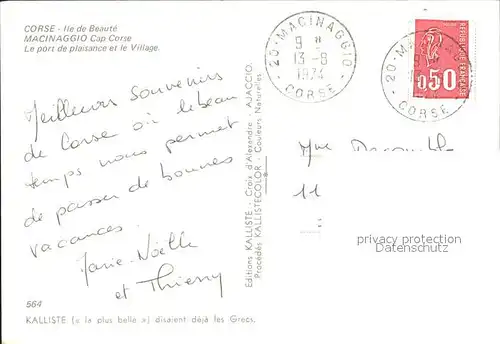 CORSE - Ile de Beauté
MACINAGGIO Cap Corse
Le port de plaisance et le Village.
Meilleurs souvenirs
de Corse où le beau
temps nous permet
de passer de bonnes
vacances.
Marie-Noëlle
et Thierry
564
KALLISTE (« la plus belle ») disaient déjà les Grecs.
Editions KALLISTE - Croix d'Alexandre - AJACCIO.
Procédés KALLISTECOLOR - Couleurs Naturelles.
20 - MACINAGGIO
9 H
13-8
1974
CORSE
REPUBLIQUE FRANÇAISE
0,50
20 - MA
CORSE
11
privacy protection
www.ansichtskarten-center.de